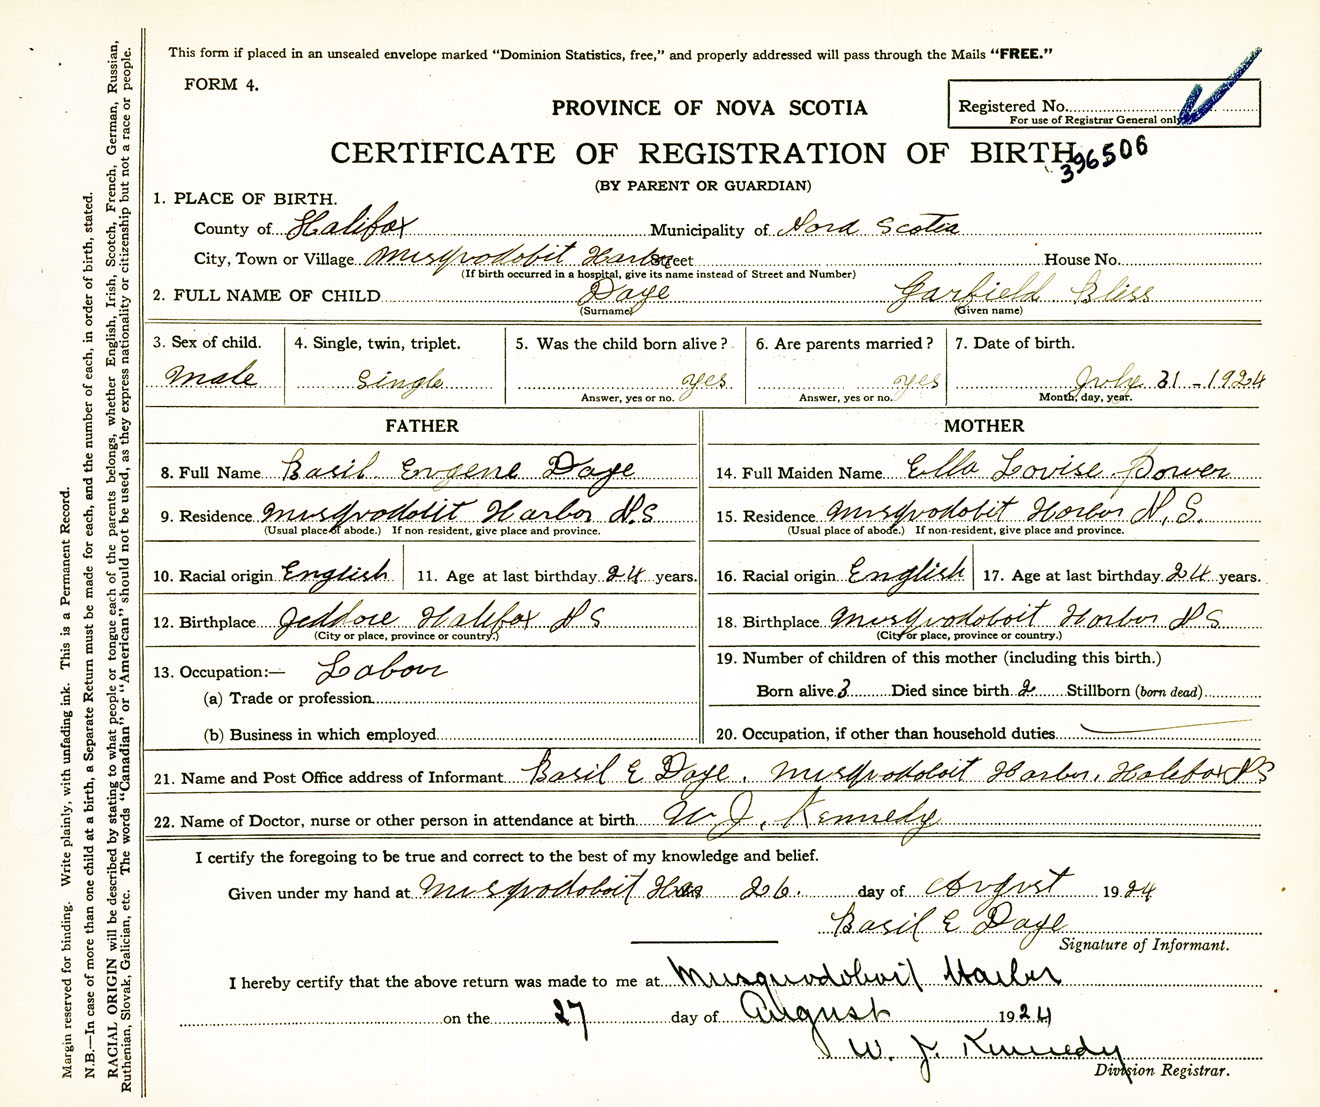 This form if placed in an unsealed envelope marked “Dominion Statistics, free,” and properly addressed will pass through the Mails “FREE.”
FORM 4.
PROVINCE OF NOVA SCOTIA
Registered No.
For use of Registrar General only
CERTIFICATE OF REGISTRATION OF BIRTH
396506
(BY PARENT OR GUARDIAN)
1. PLACE OF BIRTH.
County of Halifax Municipality of Nova Scotia
City, Town or Village Musquodobit Harbor Street House No.
(If birth occurred in a hospital, give its name instead of Street and Number)
2. FULL NAME OF CHILD Daye Garfield Bliss
(Surname) (Given name)
3. Sex of child. 4. Single, twin, triplet. 5. Was the child born alive? 6. Are parents married? 7. Date of birth.
Male Single yes yes July 31 - 1924
Answer, yes or no. Answer, yes or no. Month, day, year.
FATHER MOTHER
8. Full Name Basil Eugene Daye 14. Full Maiden Name Ella Louise Power
9. Residence Musquodobit Harbor N.S 15. Residence Musquodobit Harbor N.S.
(Usual place of abode.) If non-resident, give place and province. (Usual place of abode.) If non-resident, give place and province.
10. Racial origin English 11. Age at last birthday 24 years. 16. Racial origin English 17. Age at last birthday 24 years.
12. Birthplace Jeddore Halifax N S 18. Birthplace Musquodoboit Harbor N S
(City or place, province or country.) (City or place, province or country.)
13. Occupation:— Labour 19. Number of children of this mother (including this birth.)
(a) Trade or profession Born alive 3 Died since birth 2 Stillborn (born dead)
(b) Business in which employed 20. Occupation, if other than household duties
21. Name and Post Office address of Informant Basil E Daye, Musquodoboit Harbor, Halifax N S
22. Name of Doctor, nurse or other person in attendance at birth W J. Kennedy
I certify the foregoing to be true and correct to the best of my knowledge and belief.
Given under my hand at Musquodoboit Har 26. day of August 1924
Basil E Daye
Signature of Informant.
I hereby certify that the above return was made to me at Musquodoboit Harbor
on the 27 day of August 1924
W. J. Kennedy
Division Registrar.
Margin reserved for binding. Write plainly, with unfading ink. This is a Permanent Record.
N.B.—In case of more than one child at a birth, a Separate Return must be made for each, and the number of each, in order of birth, stated.
RACIAL ORIGIN will be described by stating to what people or tongue each of the parents belongs, whether English, Irish, Scotch, French, German, Russian,
Ruthenian, Slovak, Galician, etc. The words “Canadian” or “American” should not be used, as they express nationality or citizenship but not a race or people.